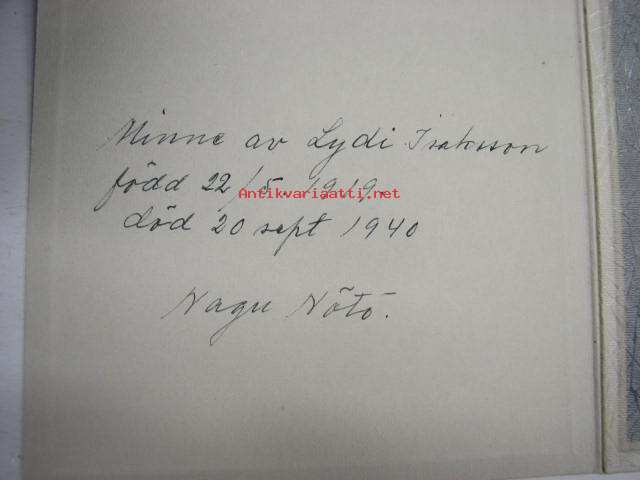 Minne av Lydi Isaksson
född 22/5. 1919.
Antikvariaatti.net
död 20 sept 1940
Nagu Nötö.